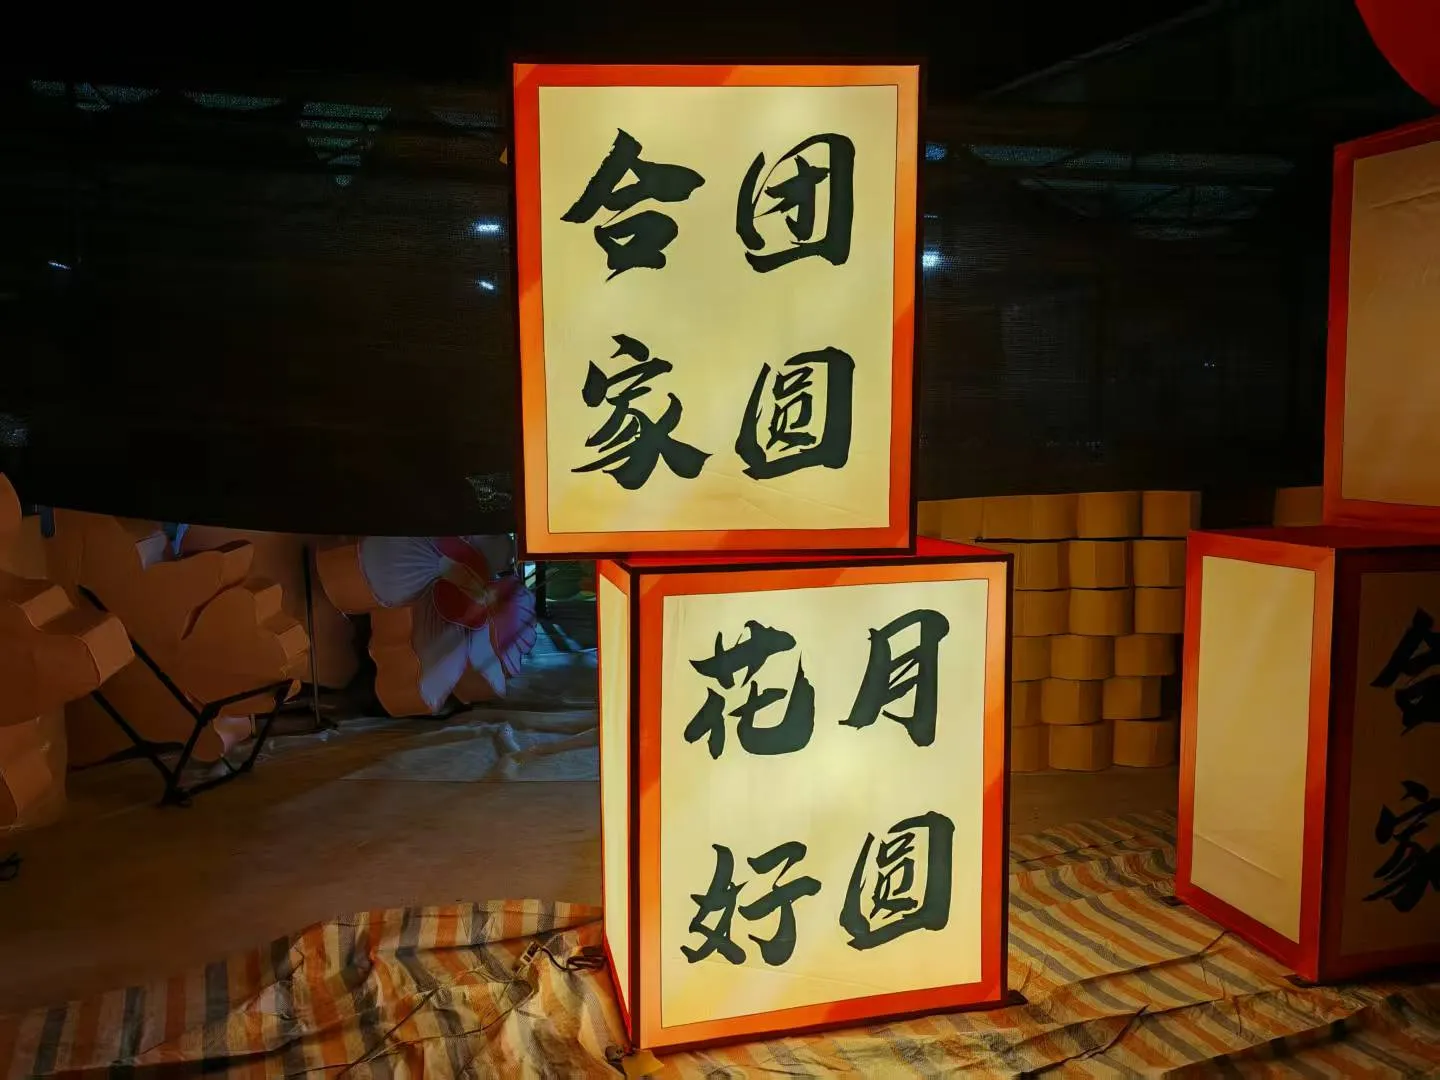 合家
团圆
花好
月圆
合家